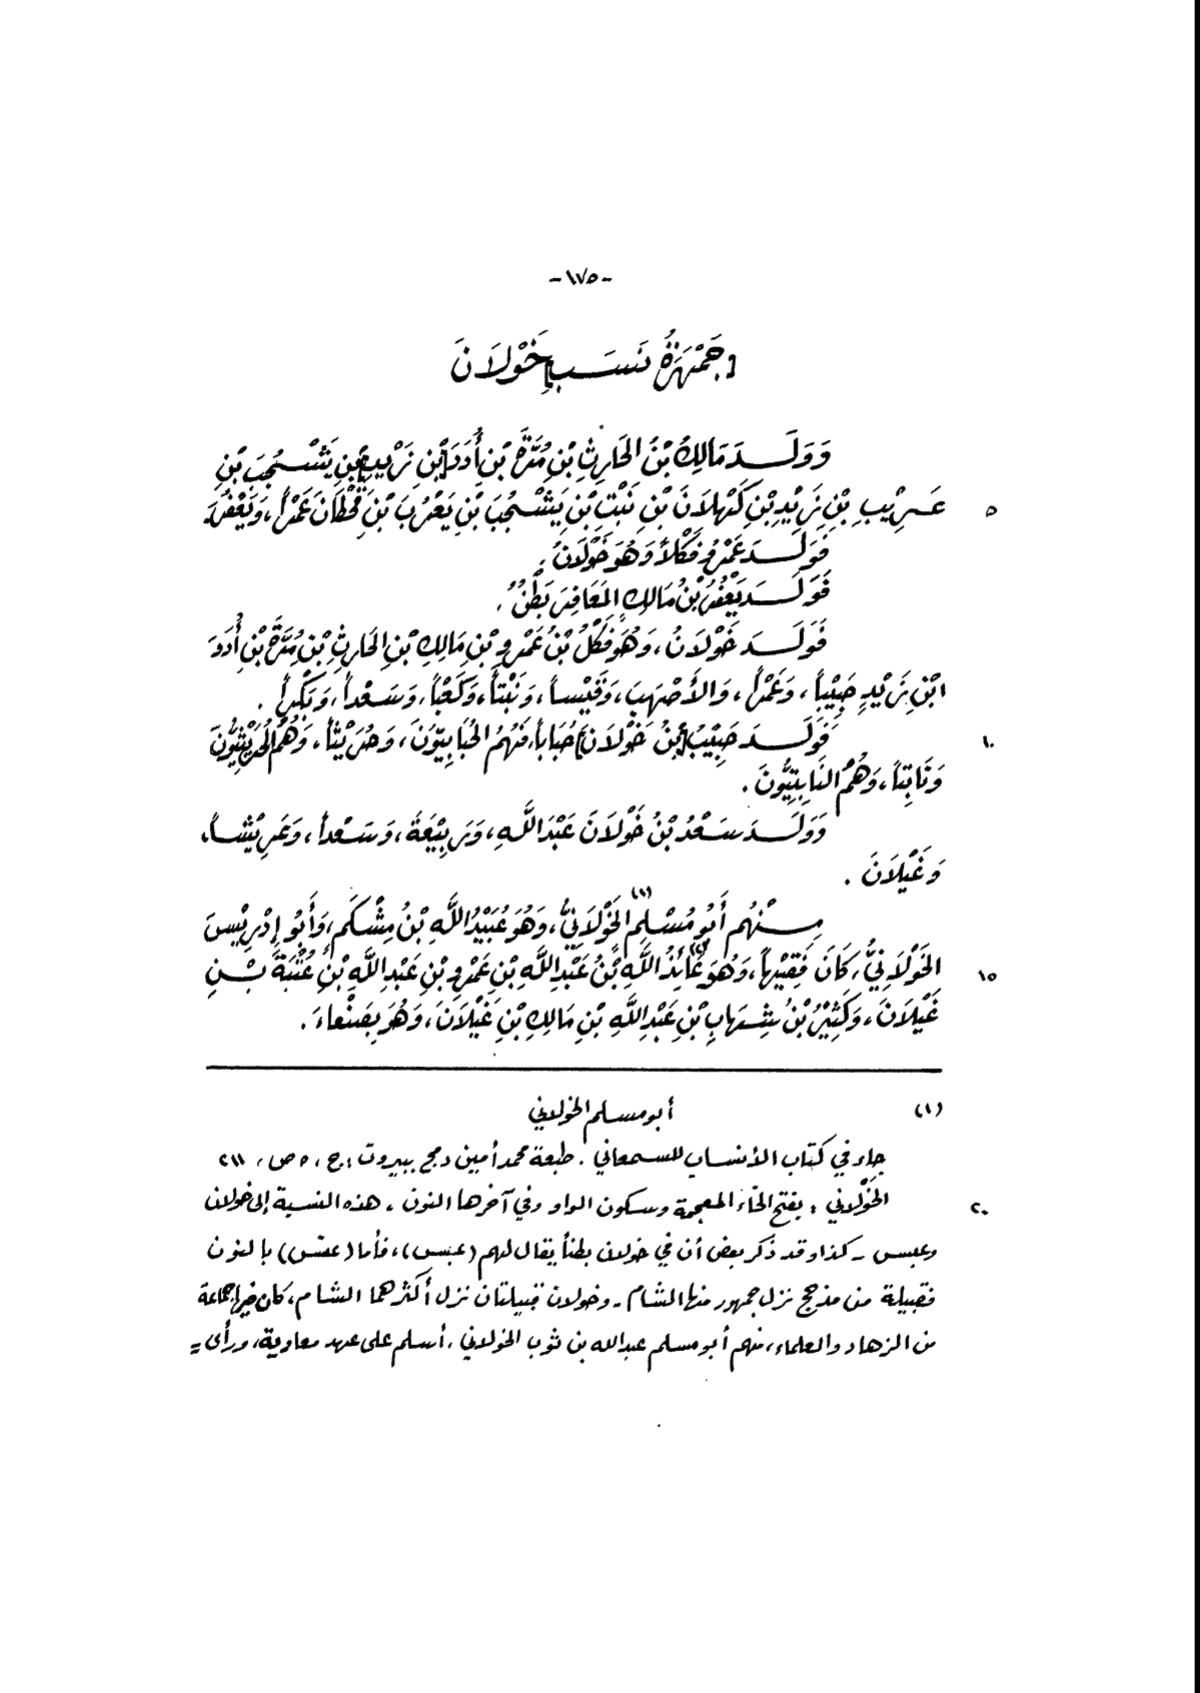 -١٧٥-
[جَمْهَرَةُ نَسَبِ خَوْلَانَ]
وَوَلَدَ مَالِكُ بْنُ الحَارِثِ بْنِ مُرَّةَ بْنِ أُدَدَ [بْنِ زَيْدِ] بْنِ يَشْجُبَ بْنِ
عَرِيْبِ بْنِ زَيْدِ بْنِ كَهْلَانَ بْنِ نَبْتِ بْنِ يَشْجُبَ بْنِ يَعْرُبَ بْنِ قَحْطَانَ عَمْراً، وَيَعْفُرَ ٥
فَوَلَدَ عَمْرٌو فَكْلاً وَهُوَ خَوْلَانُ.
فَوَلَدَ يَعْفُرُ بْنُ مَالِكٍ المَعَافِرَ بَطْنٌ.
فَوَلَدَ خَوْلَانُ، وَهُوَ فَكْلُ بْنُ عَمْرِو بْنِ مَالِكِ بْنِ الحَارِثِ بْنِ مُرَّةَ بْنِ أُدَدَ
ابْنِ زَيْدٍ حَبِيْباً، وَعَمْراً، وَالأَصْهَبَ، وَقَيْساً، وَنَبْتاً، وَكَعْباً، وَسَعْداً، وَبَكْراً.
فَوَلَدَ حَبِيْبُ [بْنُ خَوْلَانَ] حُبَاباً، فَهُمُ الحُبَابِيّوُنَ، وَحُرَيْثاً، وَهُمُ الحُرَيْثِيُّونَ ١٠
وَنَابِتاً، وَهُمُ النَابِتِيُّونَ.
وَوَلَدَ سَعْدُ بْنُ خَوْلَانَ عَبْدَ اللَّهِ، وَرَبِيْعَةَ، وَسَعْداً، وَعَرِيْشاً،
وَغَيْلَانَ.
مِنْهُم أَبُو مُسْلِمٍ الخَوْلَانِيُّ (١)، وَهُوَ عُبَيْدُ اللَّهِ بْنُ مِشْكَمٍ، وَأَبُو إِدْرِيْسَ
الخَوْلَانِيُّ، كَانَ فَقِيْهاً، وَهُوَ عَائِذُ اللَّهِ (٢) بْنُ عَبْدِ اللَّهِ بْنِ عَمْرِو بْنِ عَبْدِ اللَّهِ بْنِ عُتْبَةَ بْنِ ١٥
غَيْلَانَ، وَكَثِيْرُ بْنُ شِهَابِ بْنِ عَبْدِ اللَّهِ بْنِ مَالِكِ بْنِ غَيْلَانَ، وَهُوَ بِصَنْعاءَ.
(١) أبو مسلم الخولاني
جاء في كتاب الأنساب للسمعاني . طبعة محمد أمين دمج ببيروت :ج ، ٥ ص، ٢١١
الخَوْلاني : بفتح الخاء المعجمة وسكون الواو وفي آخرها النون ، هذه النسبة إلى خولان ٢٠
وعبس - كذا وقد ذكر بعض أن في خولان بطناً يقال لهم (عبس)، فأما (عنس) بالنون
فقبيلة من مذحج نزل جمهور منها الشام - وخولان قبيلتان نزل أكثرهما الشام، كان فيها جماعة
من الزهاد والعلماء، منهم أبو مسلم عبدالله بن ثوب الخولاني ، أسلم على عهد معاوية، ورأى =